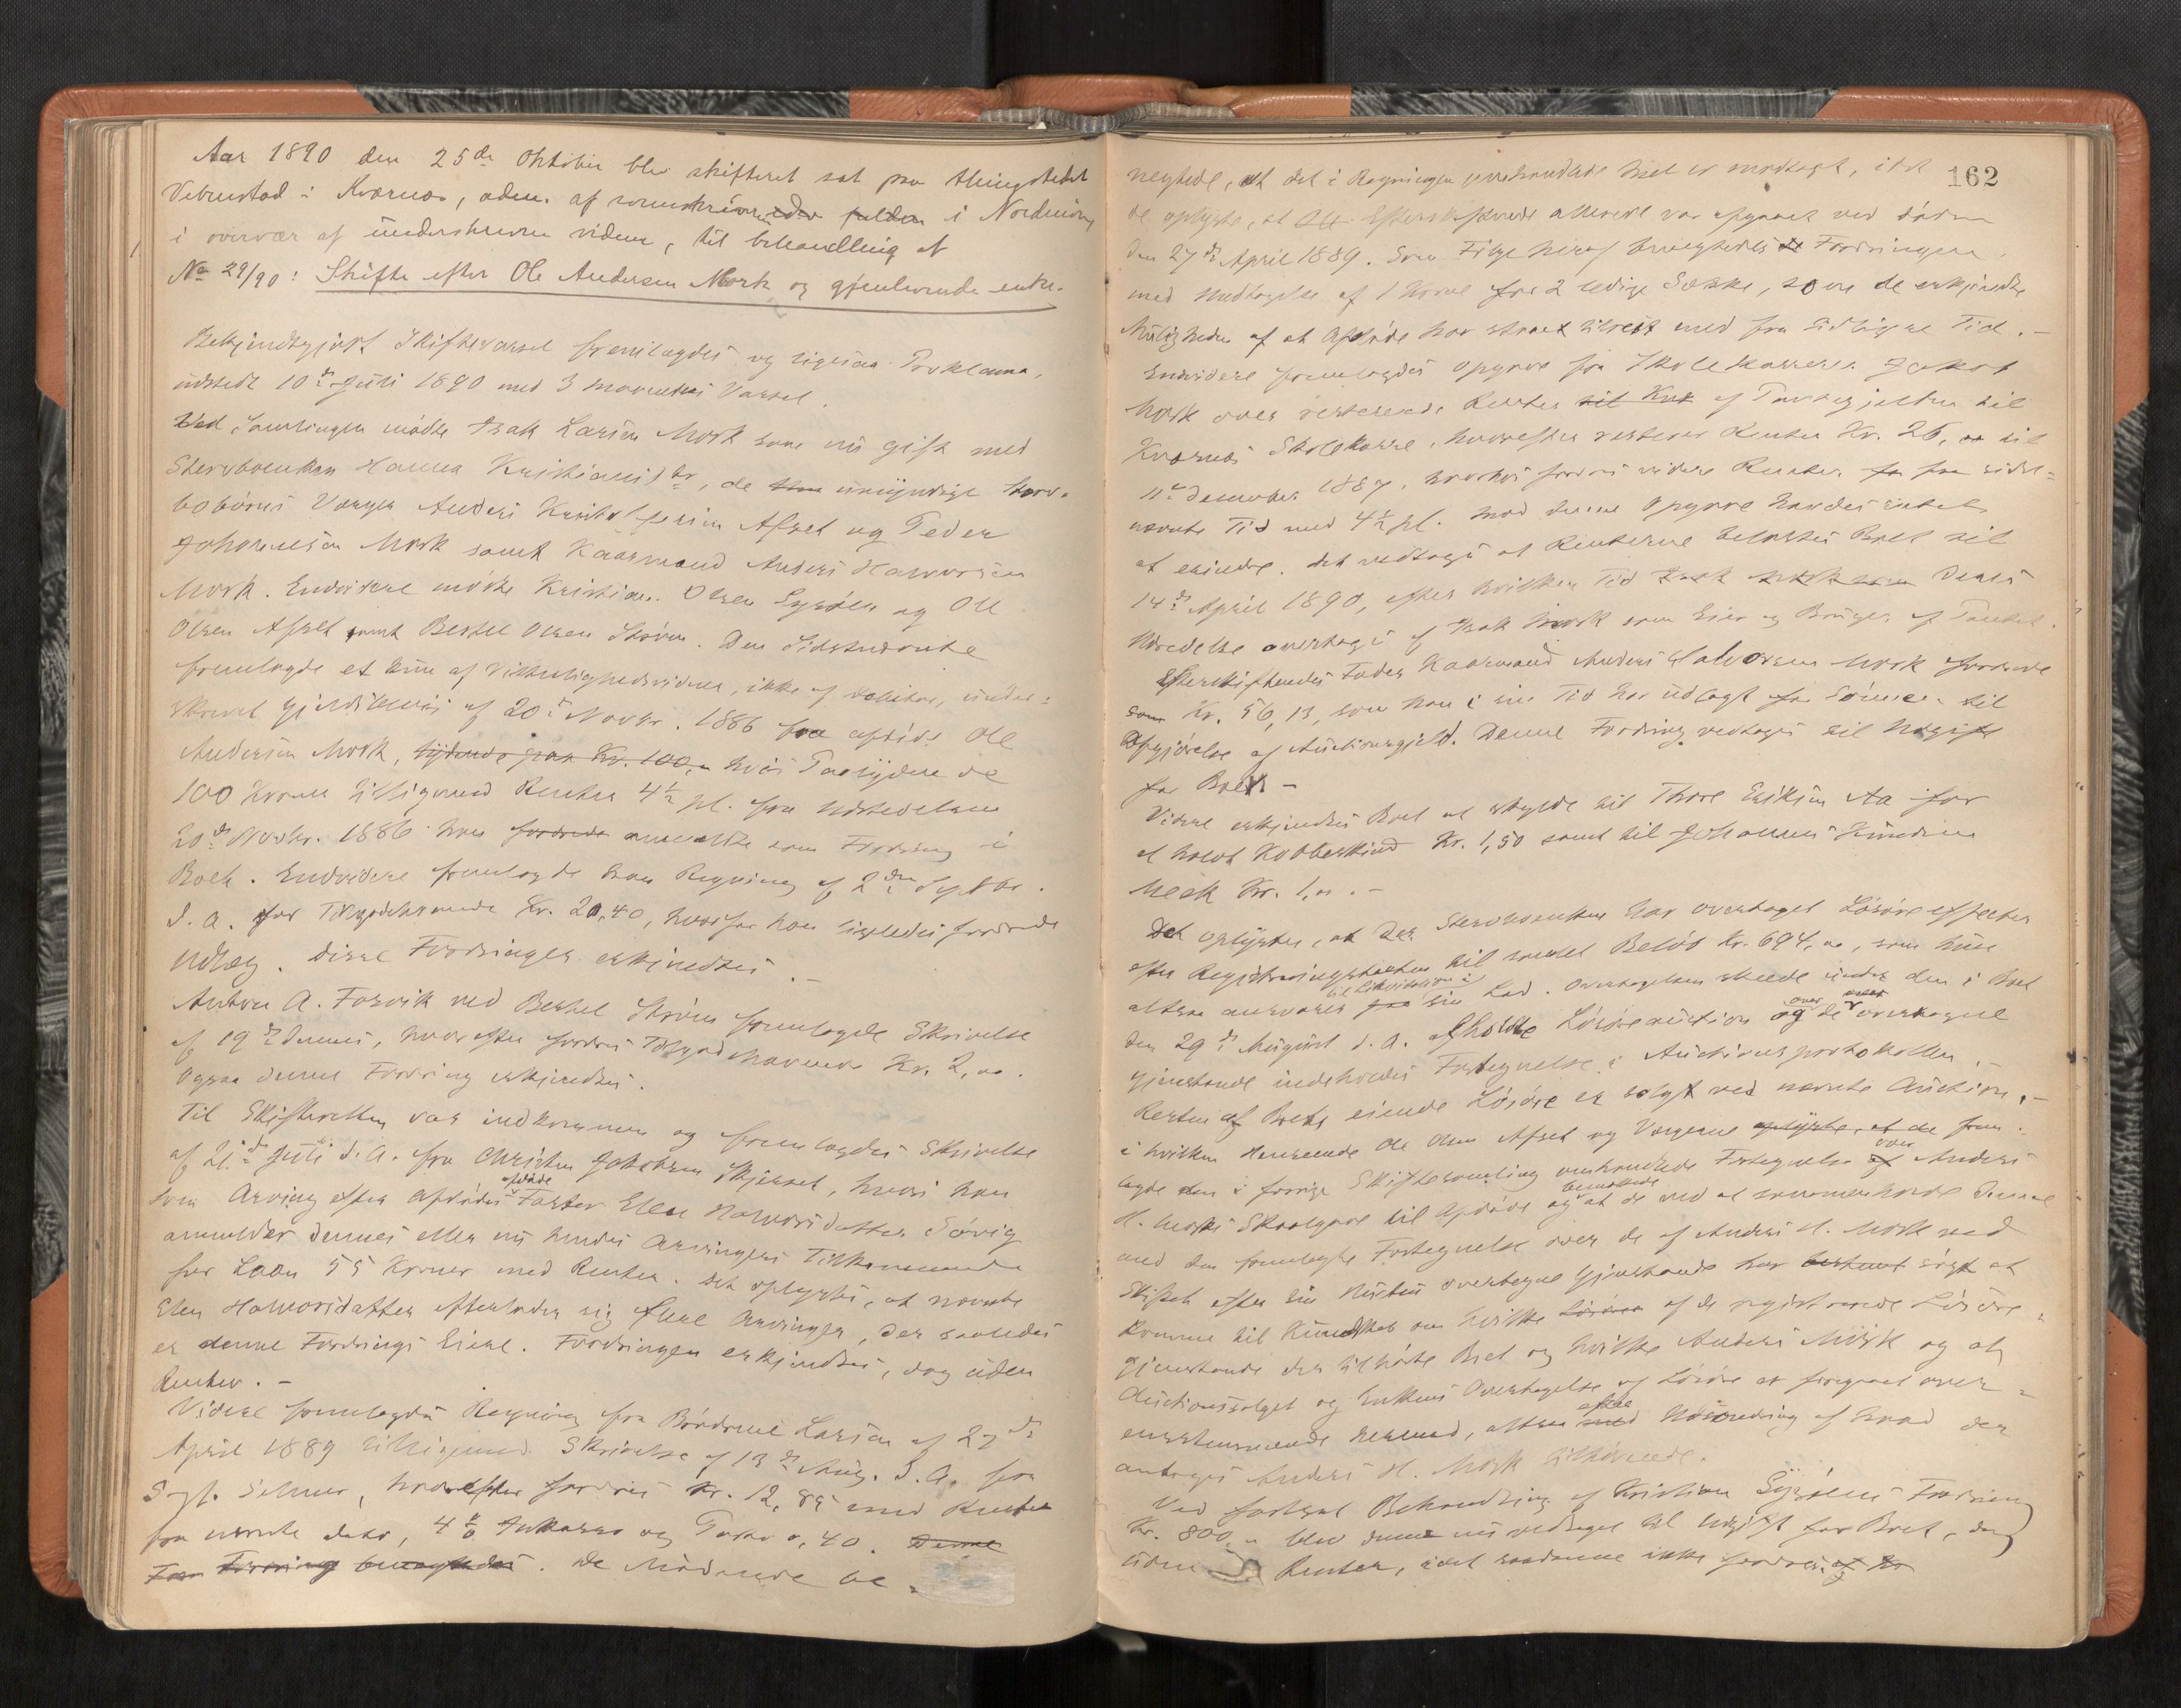 Aar 1890 den 25de Oktober blev skifteret sat paa thingstedet
Vebenstad i Kværnæs, adm. af sorenskriver i Nordmøre,
i overvær af underskrevne vidner, til behandling af
No 29/90: Skifte efter Ole Andersen Mork og gjenlevende enke.
Bekjendtgjort Skiftevarsel fremlagdes og ligesaa Proklama,
udstedt 10de Juli 1890 med 3 maaneders Varsel.
Ved Samlingen mødte Isak Larsen Mork som nu gift med
Stervboenken Hanna Kristiansdtr, de umyndige Sterv-
bobørns Værger Anders Kristofersen Afset og Peder
Johannesen Mork samt Kaarmand Anders Halvorsen
Mork. Endvidere mødte Kristian Olsen Sysøen og Ole
Olsen Afset samt Bertel Olsen Strøm. Den Sidstnævnte
fremlagde et kun af Vitterlighedsvidner, ikke af debitor, under-
skrevet Gjeldsbevis af 20de Novbr. 1886 fra afdøde Ole
Andersen Mork, lydende paa Kr. 100,00 hvis Paalydende
100 Kroner tilligemed Renter 4½ pC. fra Udstedelsen
20de Novbr. 1886 han fordrede anmeldte som Fordring i
Boet. Endvidere fremlagde han Regning af 2den Septbr.
d. A. for Tilgodehavende Kr. 20,40, hvorfor han ligeledes fordrede
Udlæg. Disse Fordringer erkjendtes.
Anton A. Fosvik ved Bertel Strøm fremlagde Skrivelse
af 19de dennes, hvorefter fordres Tilgodehavende Kr. 2,00.
Ogsaa denne Fordring erkjendtes.
Til Skifteretten var indkommen og fremlagdes Skrivelse
af 21de Juli d. A. fra Christen Johnsen Skjerset, hvori han
som Arving efter Afdødes afdøde Faster Elen Halvorsdatter Sørvig
anmelder dennes eller nu hendes Arvingers Tilkommende
for Laan 55 Kroner med Renter. Det oplystes, at nævnte
Elen Halvorsdatter efterlader sig flere Arvinger, der saaledes
er denne Fordrings Eiere. Fordringen erkjendtes, dog uden
Renter. -
Videre fremlagdes Regning fra Brødrene Larsen af 27de
April 1889 tilligemed Skrivelse af 13de Aug. d. A. fra
Sagf. Selmer, hvorefter fordres Kr. 12,85 med Renter
fra nævnte dato, 4% Inkasso og Porto 0,40. Denne
For Fordring benegtedes. De Mødende be-
162
negtede, at det i Regningen omhandlede Mel er modtagt, idet
de oplyste, at Efterskiftende allerede var afgaaet ved døden
den 27de April 1889. Som Følge heraf benegtedes Fordringen
med Undtagelse af 1 Krone for 2 ledige Sække, som de erkjendte
Muligheden af at Afdøde har staaet tilrest med fra tidligere Tid. -
Endvidere fremlagdes Opgave fra Skolekasserer Jakob
Mork over resterende Renter til Kvæ af Pantegjelden til
Kværnes Skolekasse, hvorefter resterer Renter Kr. 25,00 til
11te December 1887, hvorhos fordres videre Renter fra sidst-
nævnte Tid med 4½ pC. Mod denne Opgave havdes intet
at erindre. Det vedtoges at Renterne belastes Boet til
14de April 1890, efter hvilken Tid deres
Udredelse overtages af Isak Mork som Eier og Bruger af Pantet.
Efterskiftendes Fader Kaarmand Anders Halvorsen Mork fordrede
som Kr. 56,13, som han i sin Tid har udlagt for Sønnen til
Afgjørelse af Auctionsgjeld. Denne Fordring vedtoges til Udgift
for Boet -
Videre erkjendtes Boet at skylde til Thore Eriksen Aa for
et halvt Kobberskind Kr. 1,50 samt til Johannes
Meek Kr. 1,00. -
Det oplystes, at Stervboenken har overtaget Løsøreeffecter
efter Registreringstaxten til samlet Beløb Kr. 694,00, som hun
altsaa ansvarer til Likvidation i sin Lod. Overtagelsen skeede under den i Boet
den 29de August d. A. afholdte Løsøreauction og over de overtagne
Gjenstande indeholdes Fortegnelse i Auctionsprotokollen. -
Resten af Boets eiende Løsøre er solgt ved nævnte Auction, -
i hvilken Henseende Ole Olsen Afset og Værgerne oplyste, at de frem-
lagde den i forrige Skiftesamling omhandlede Fortegnelse over Anders
H. Morks Skaalgave til Afdøde og bemærkede at de ved at sammenholde denne
med den fremlagte Fortegnelse over de af Anders H. Mork ved
Skiftet efter sin Hustru overtagne Gjenstande har bestemt søgt at
komme til Kundskab om hvilke af de registrerede Løsøre-
gjenstande der tilhørte Boet og hvilke Anders Mork og at
Auctionssalget og Enkens Overtagelse af Løsøre er foregaaet over-
ensstemmende hermed, altsaa efter Udsondring af hvad der
antages Anders H. Mork tilhørende.
Ved fortsat Behandling af Kristian Sysøens Fordring
Kr. 800,00 blev denne nu vedtaget til Udgift for Boet, dog
uden Renter, idet saadanne ikke fordres af